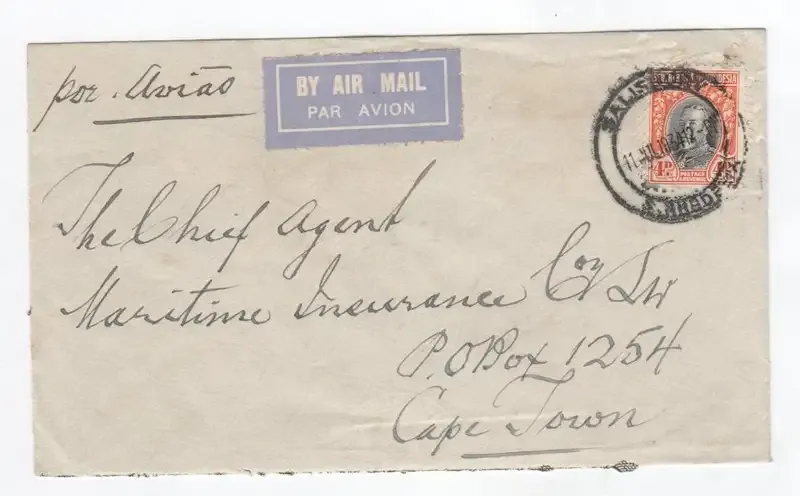 por Avião
BY AIR MAIL
PAR AVION
SALISBURY
S. RHODESIA
POSTAGE
The Chief Agent
Maritime Insurance Coy Ld
P.O Box 1254
Cape Town